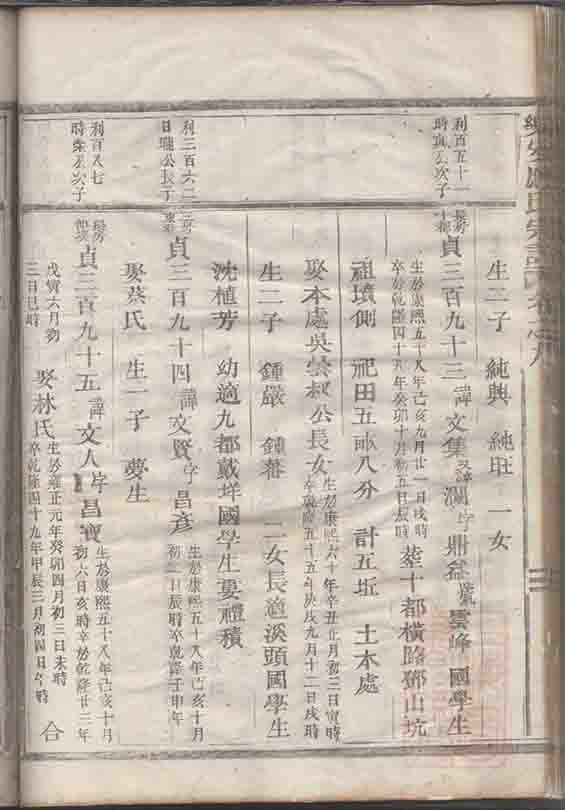 生二子 純與 純班 一女
利百五十一
時真公次子
貞三百九十三諱文集又諱瀾字鼎盆號雲峰國學生
生於康熙五十八年己亥九月廿一日戌時
卒於乾隆四十八年癸卯十月初五日辰時
葬十都橫路鄧山坑
祖墳側 祀田五畝八分 計五坵 土本處
娶本處吳崇叔公長女
生於康熙六十年辛丑正月初三日寅時
卒乾隆五十五年庚戌九月十二日戌時
生二子 鍾嚴 鍾蕃 二女長適溪頭國學生
沈植芳 幼適九都戴垟國學生夏禮積
利三百六二
日曨公長子
貞三百九十四諱文賢字昌彥
生於康熙五十八年己亥十月
初二日辰時卒乾隆壬申年
娶蔡氏 生一子 夢生
利百八七
時榮公次子
貞三百九十五諱文人字昌寶
生於康熙五十八年己亥十月
初六日亥時卒於乾隆廿三年
戊寅六月初
三日巳時
娶林氏
生於雍正元年癸卯四月初三日未時
卒乾隆四十九年甲辰三月初四日午時
合